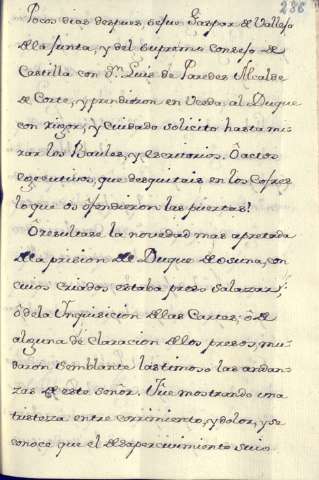 286
Pocos dias despues se fue Gaspar de Vallejo
de la Junta, y del supremo Consejo de
Castilla con Dn. Luis de Paredes Alcalde
de Corte, y prendieron en Uceda al Duque
con rigor, y Cuidado solicito hasta mi-
rar los Baúles, y escritorios. Ô actos
egecutivos, que desquitais en los Cofres
lo que os ofendieron las puertas!
Ô resultase la novedad mas apretada
de la prision del Duque de Osuna, con
cuios criados estaba preso Salazar;
ó de la Inquisicion de las Cartas; ó de
alguna declaracion de los presos, mu-
daron semblante lastimoso las andan-
zas de este señor. Vîve mostrando una
tristeza entre corrimiento, y dolor, y se
conoce que el desapercivimiento suio